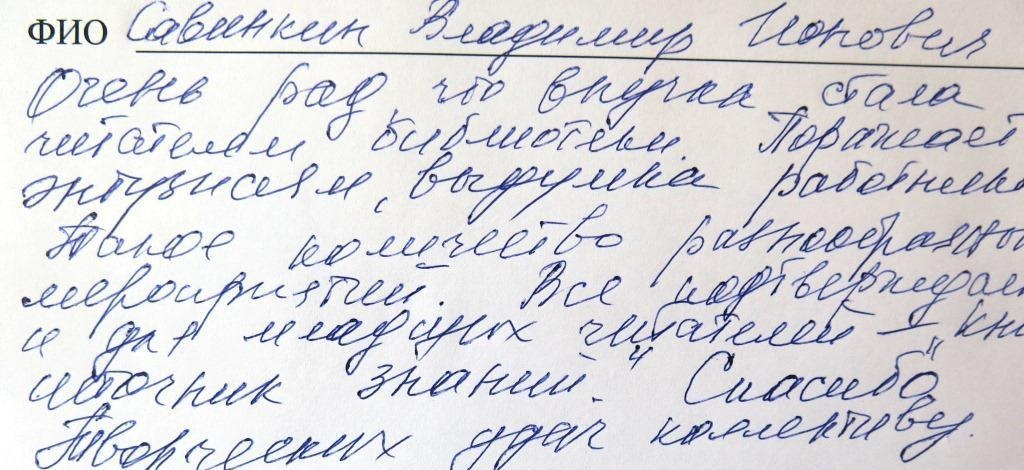 ФИО Савинкин Владимир Ионович
Очень рад, что внучка стала
читателем библиотеки. Поражает
энтузиазм, выдумка
Такое количество
мероприятий. Все
и для младших читателей –
источник знаний." Спасибо
Творческих удач коллективу.